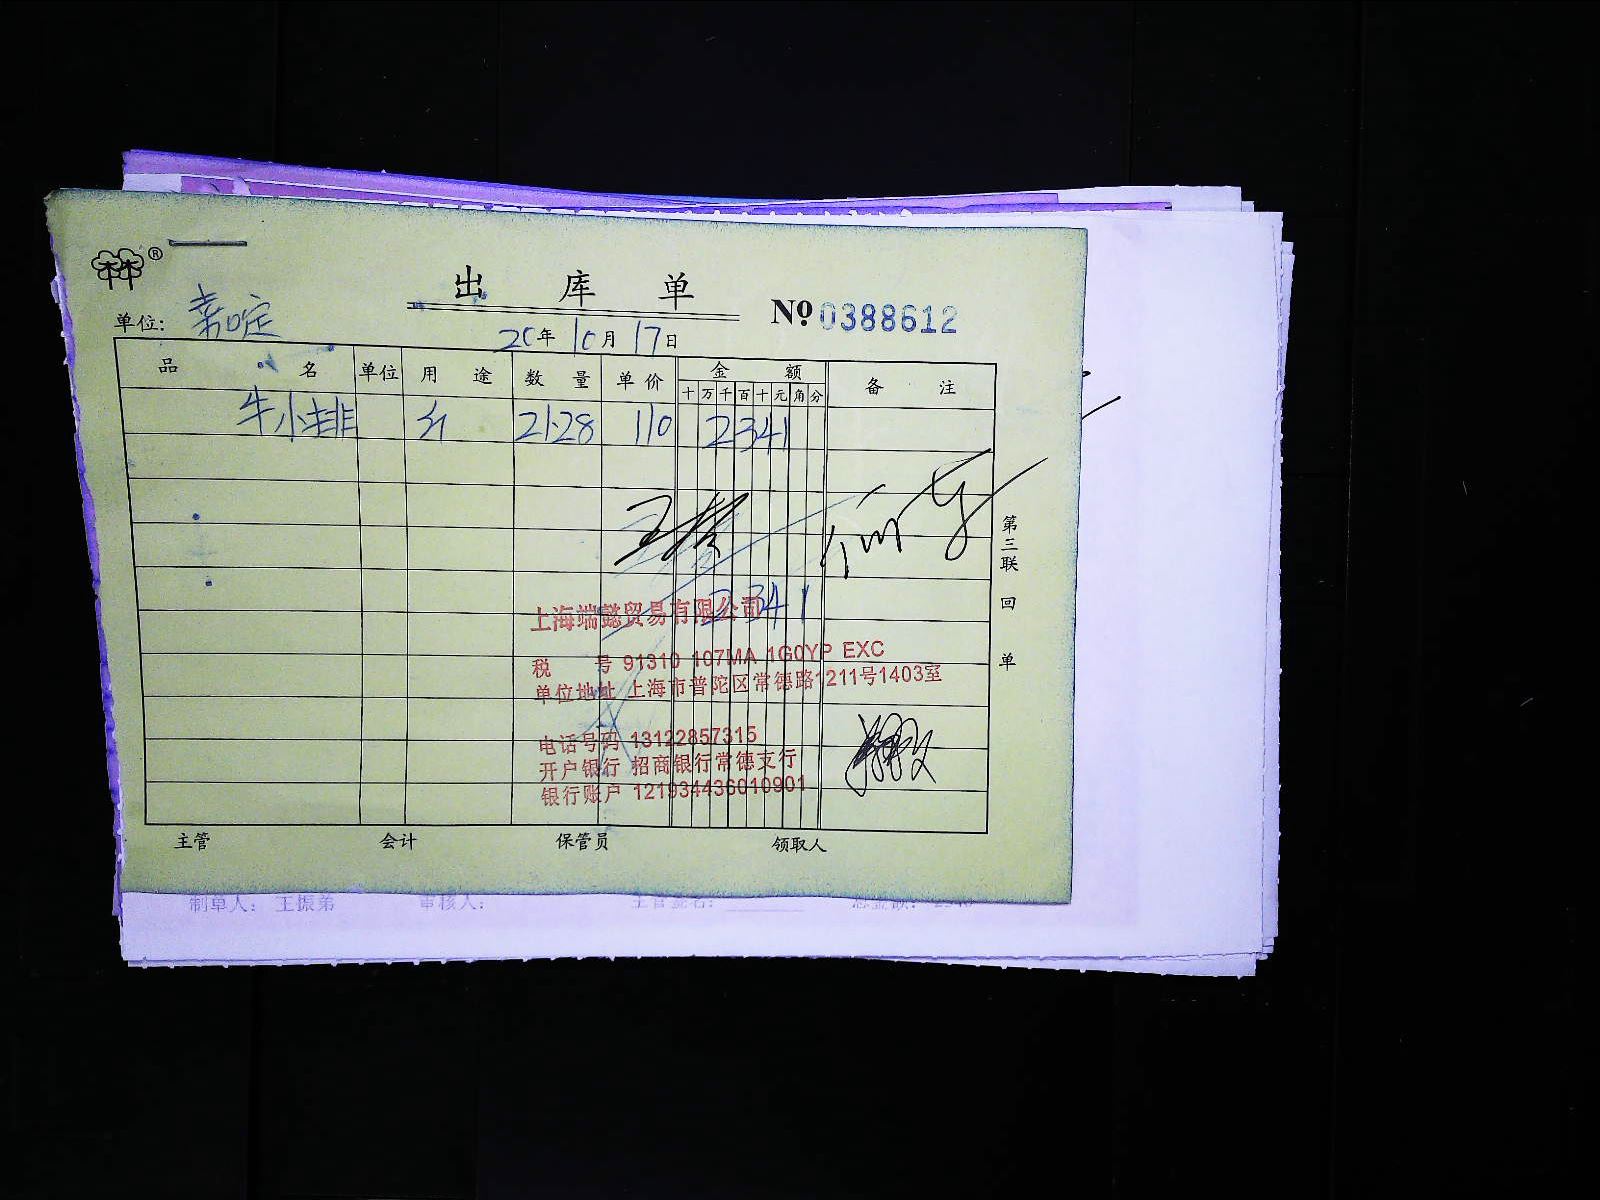 林®
出 库 单
№ 0388612
单位:
20年10月17日
品 名 单位 用 途 数 量 单 价 金 额 备 注
十 万 千 百 十 元 角 分
牛小排 21.28 110 2341
2341
上海端懿贸易有限公司
税 号 91310 107MA 1G0YP EXC
单位地址 上海市普陀区常德路1211号1403室
电话号码 13122857315
开户银行 招商银行常德支行
银行账户 121934436010901
第三联 回 单
主管 会计 保管员 领取人
制单人: 王振弟 审核人: